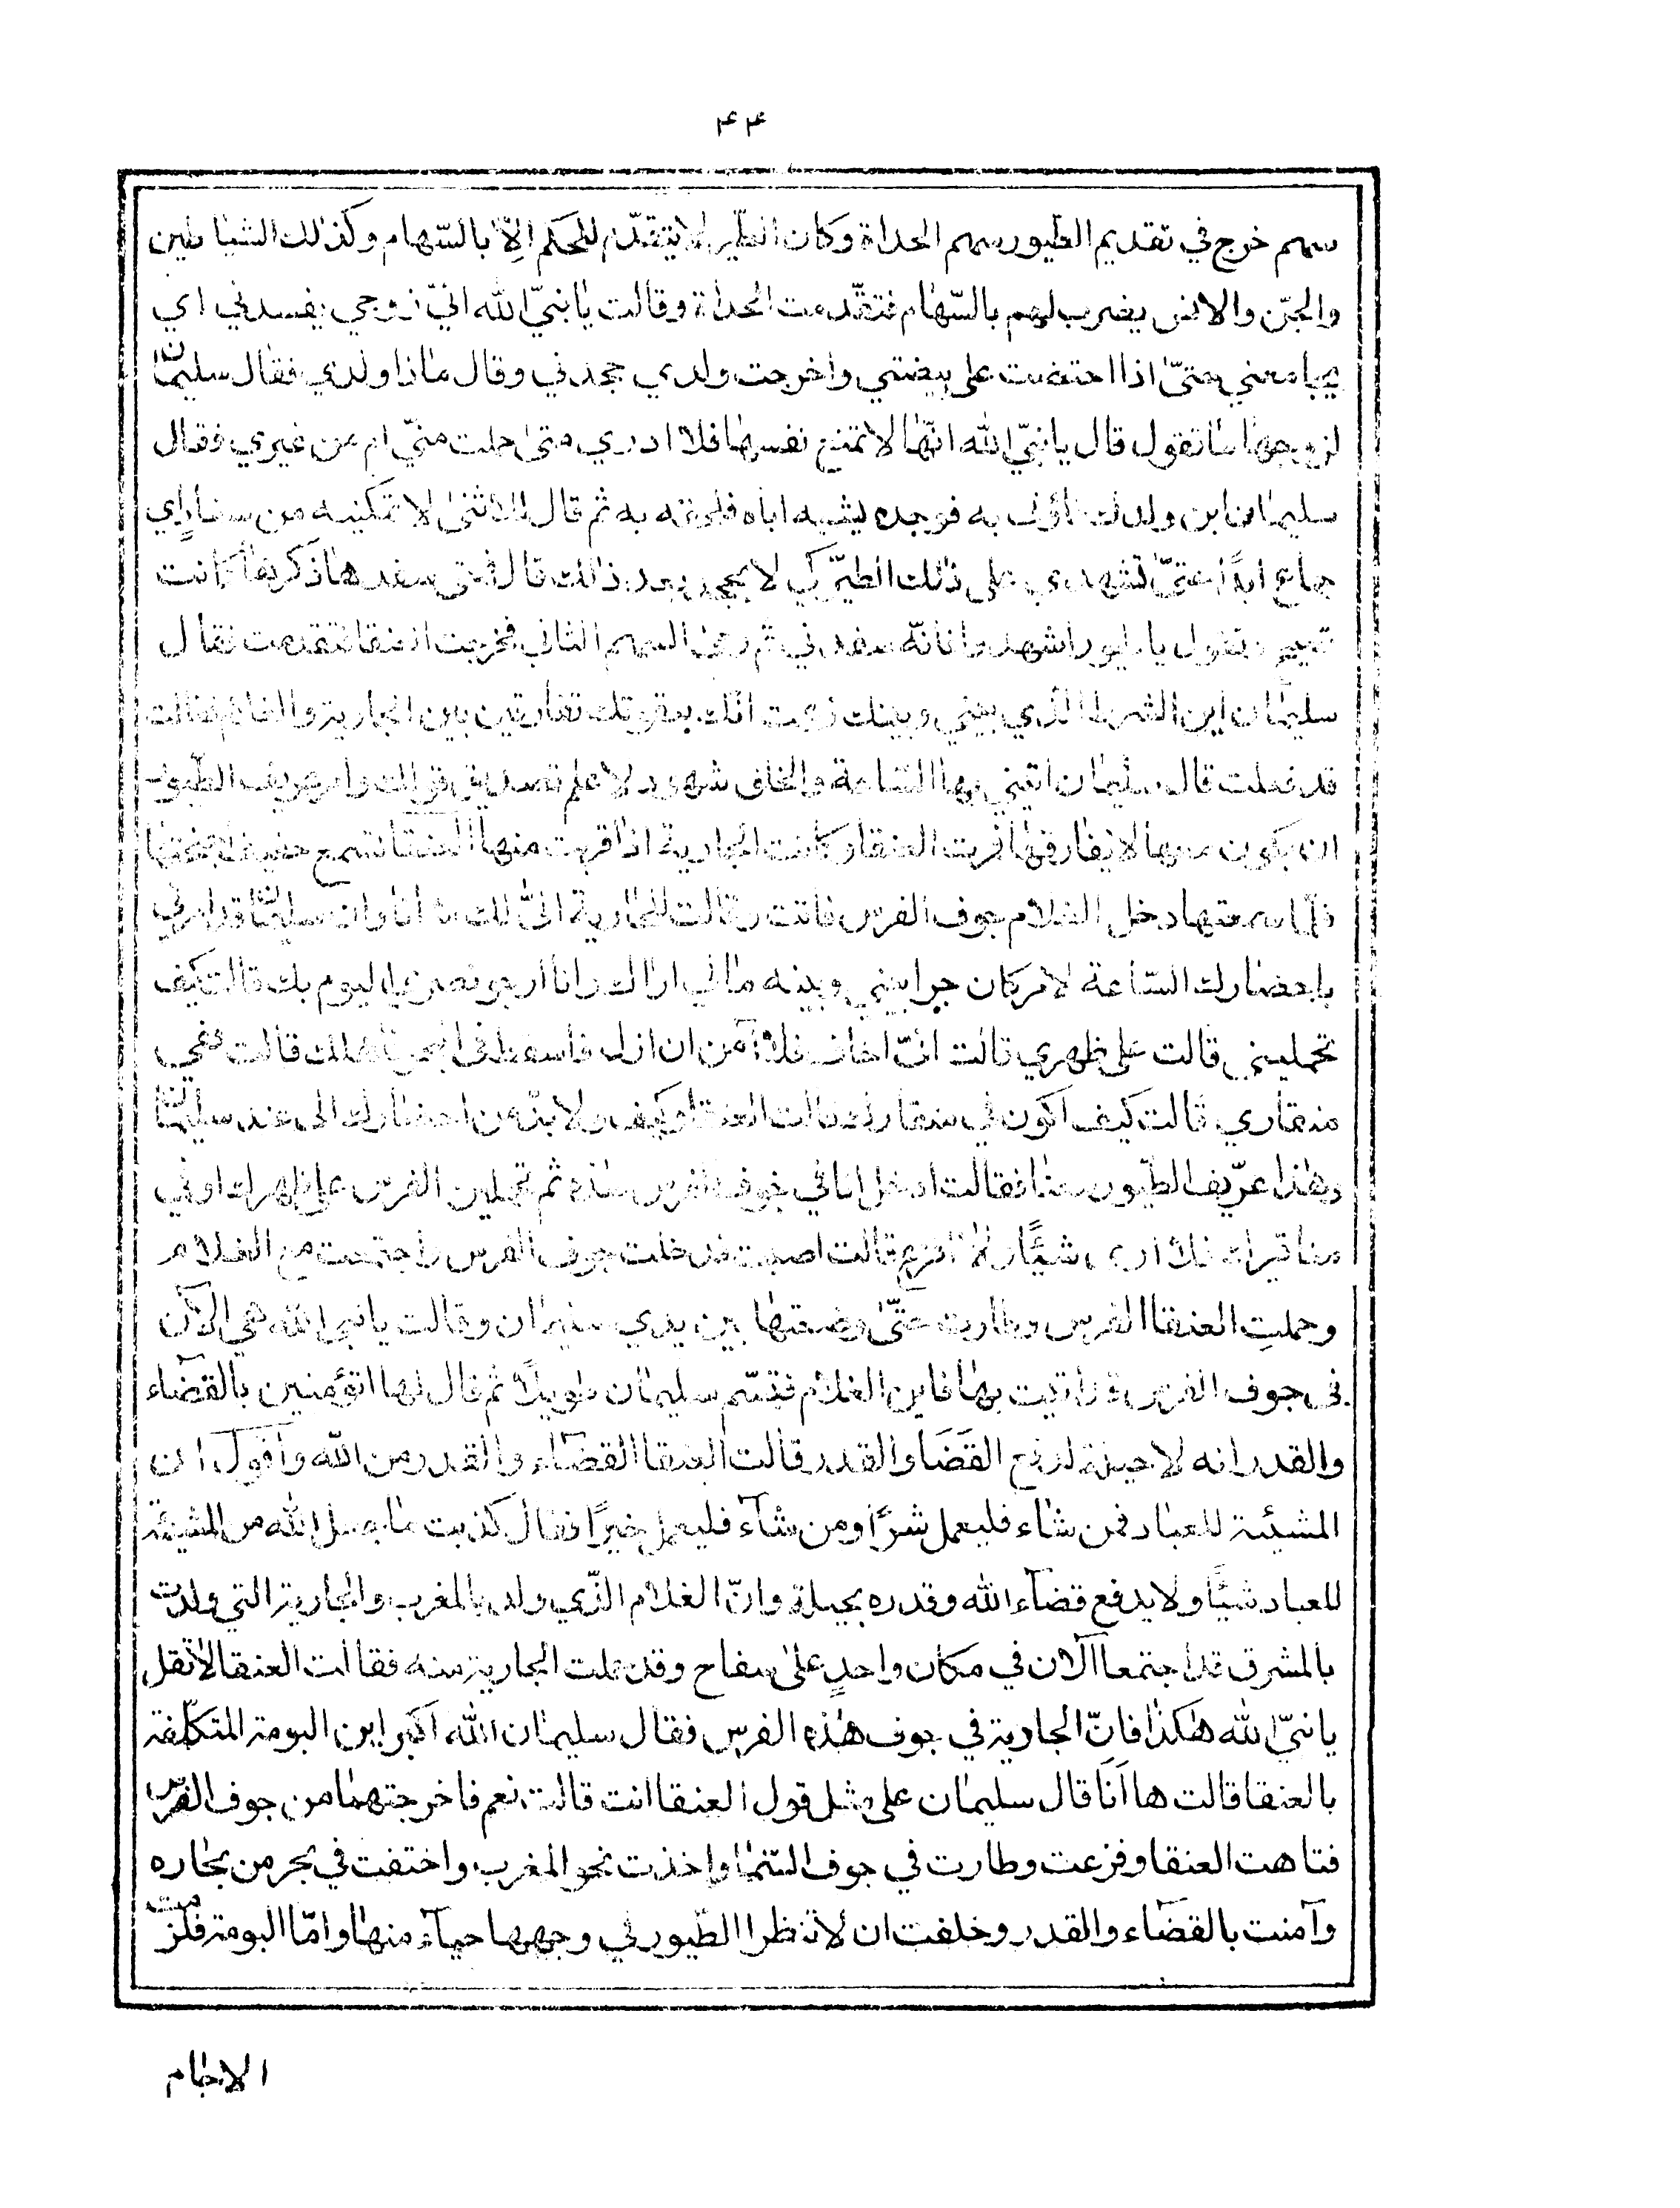 ۴۴
سهم خرج في تقديم الطيور سهم الحداة وكان الطّير لا يتقدّم للحكم الاّ بالسّهام وكذلك الشياطين
والجنّ والانس يضرب لهم بالسّهام فتقدّمت الحداة وقالت يا نبيّ الله انّي زوجي يفسدني اي
يجامعني حتىّ اذا احتضنت على بيضتي واخرجت ولدي جحدني وقال ماذا ولدي فقال سليمان
لزوجها ما تقول قال يا نبيّ الله انّها لا تمنع نفسها فلا ادري متى حملت منيّ ام من غيري فقال
سليمان اين ولدك فأوتي به فوجده يشبه اباه فلزمه به ثم قال للانثى لا تمكنيه من سفاد اي
جماع ابدًا حتىّ تشهدي على ذلك الطّير كي لا يجحد بعد ذلك قال فمتى سفدها ذكرها كانت
تصيح وتقول يا طيور اشهدوا فانّه سفدني ثم رمى السهم الثاني فخرجت العنقا فتقدمت فقال
سليمان اين الشرط الذي بيني وبينك زعمت انّك بقوتك تفارقين بين الجارية والغلام فقالت
قد فعلت قال سليمان اتيني بها السّاعة والخلق شهود لاعلم تصديق قولك وامر عريف الطّيور
ان يكون معها لا يفارقها فمرت العنقا وكانت الجارية اذا قربت منها العنقا تسمع حفيف اجنحتها
فلمّا سمعتها دخل الغلام جوف الفرس فاتت وقالت للجارية
باحضارك السّاعة لامر كان جرا بيني وبينه مالي اراك وانا ارجو نصري اليوم بك قالت كيف
تحمليني قالت على ظهري قالت انّي اخاف فلا آمن ان ازل فاسقط في البحر فاهلك قالت ففي
منقاري قالت كيف اكون في منقارك فقالت العنقا وكيف ولا بدّ من احضارك الى عند سليمان
وهذا عرّيف الطّيور معنا فقالت ادخل انا في جوف الفرس هذه ثم تحملين الفرس على ظهرك او في
منقارك فلا ارى شيًّا ولا افزع قالت اصبت فدخلت جوف الفرس واجتمعت مع الغلام
وحملت العنقا الفرس وطارت حتّى وضعتها بين يدي سليمان وقالت يا نبي الله هي الآن
في جوف الفرس قد اتيت بها فاين الغلام فتبسّم سليمان طويلًا ثم قال لها اتؤمنين بالقضاء
والقدر انه لا حيلة لدفع القضا والقدر قالت العنقا القضاء والقدر من الله واقول ان
المشيئة للعباد فمن شاء فليعمل شرًّا ومن شآء فليعمل خيرًا فقال كذبت ما جعل الله من المشيئة
للعباد شيًّا ولا يدفع قضآء الله وقدره بحيلة وانّ الغلام الذّي ولد بالمغرب والجارية التي ولدت
بالمشرق قد اجتمعا الان في مكان واحدٍ على سفاح وقد حملت الجارية منه فقالت العنقا لا تقل
يا نبيّ الله هكذا فانّ الجارية في جوف هذه الفرس فقال سليمان الله اكبر اين البومة المتكلّفة
بالعنقا قالت ها اَنَا قال سليمان على مثل قول العنقا انت قالت نعم فاخرجتهما من جوف الفرس
فتاهت العنقا وفزعت وطارت في جوف السّما واخذت نحو المغرب واختفت في بحر من بحاره
وآمنت بالقضاء والقدر وخلفت ان لا تنظرا الطّيور في وجهها حيآء منها وامّا البومة فلزمت
الاجام